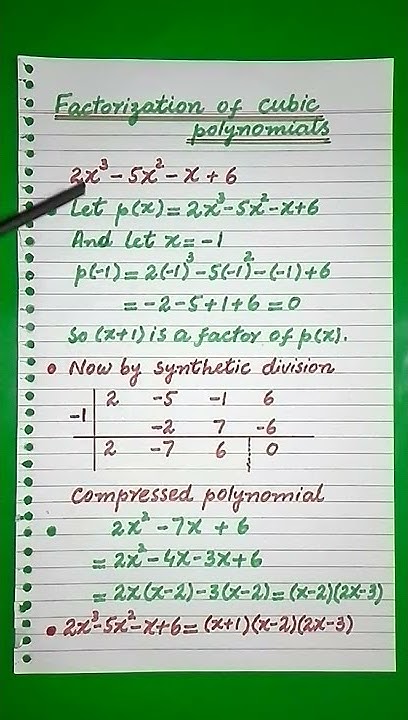 Factorization of cubic
polynomials
2x³ - 5x² - x + 6
• Let p(x) = 2x³-5x²-x+6
And let x = -1
p(-1) = 2(-1)³-5(-1)²-(-1)+6
= -2-5+1+6 = 0
So (x+1) is a factor of p(x).
• Now by synthetic division
2 -5 -1 6
-1
-2 7 -6
2 -7 6 0
Compressed polynomial
• 2x² - 7x + 6
= 2x² - 4x - 3x + 6
= 2x(x-2)-3(x-2) = (x-2)(2x-3)
• 2x³-5x²-x+6 = (x+1)(x-2)(2x-3)